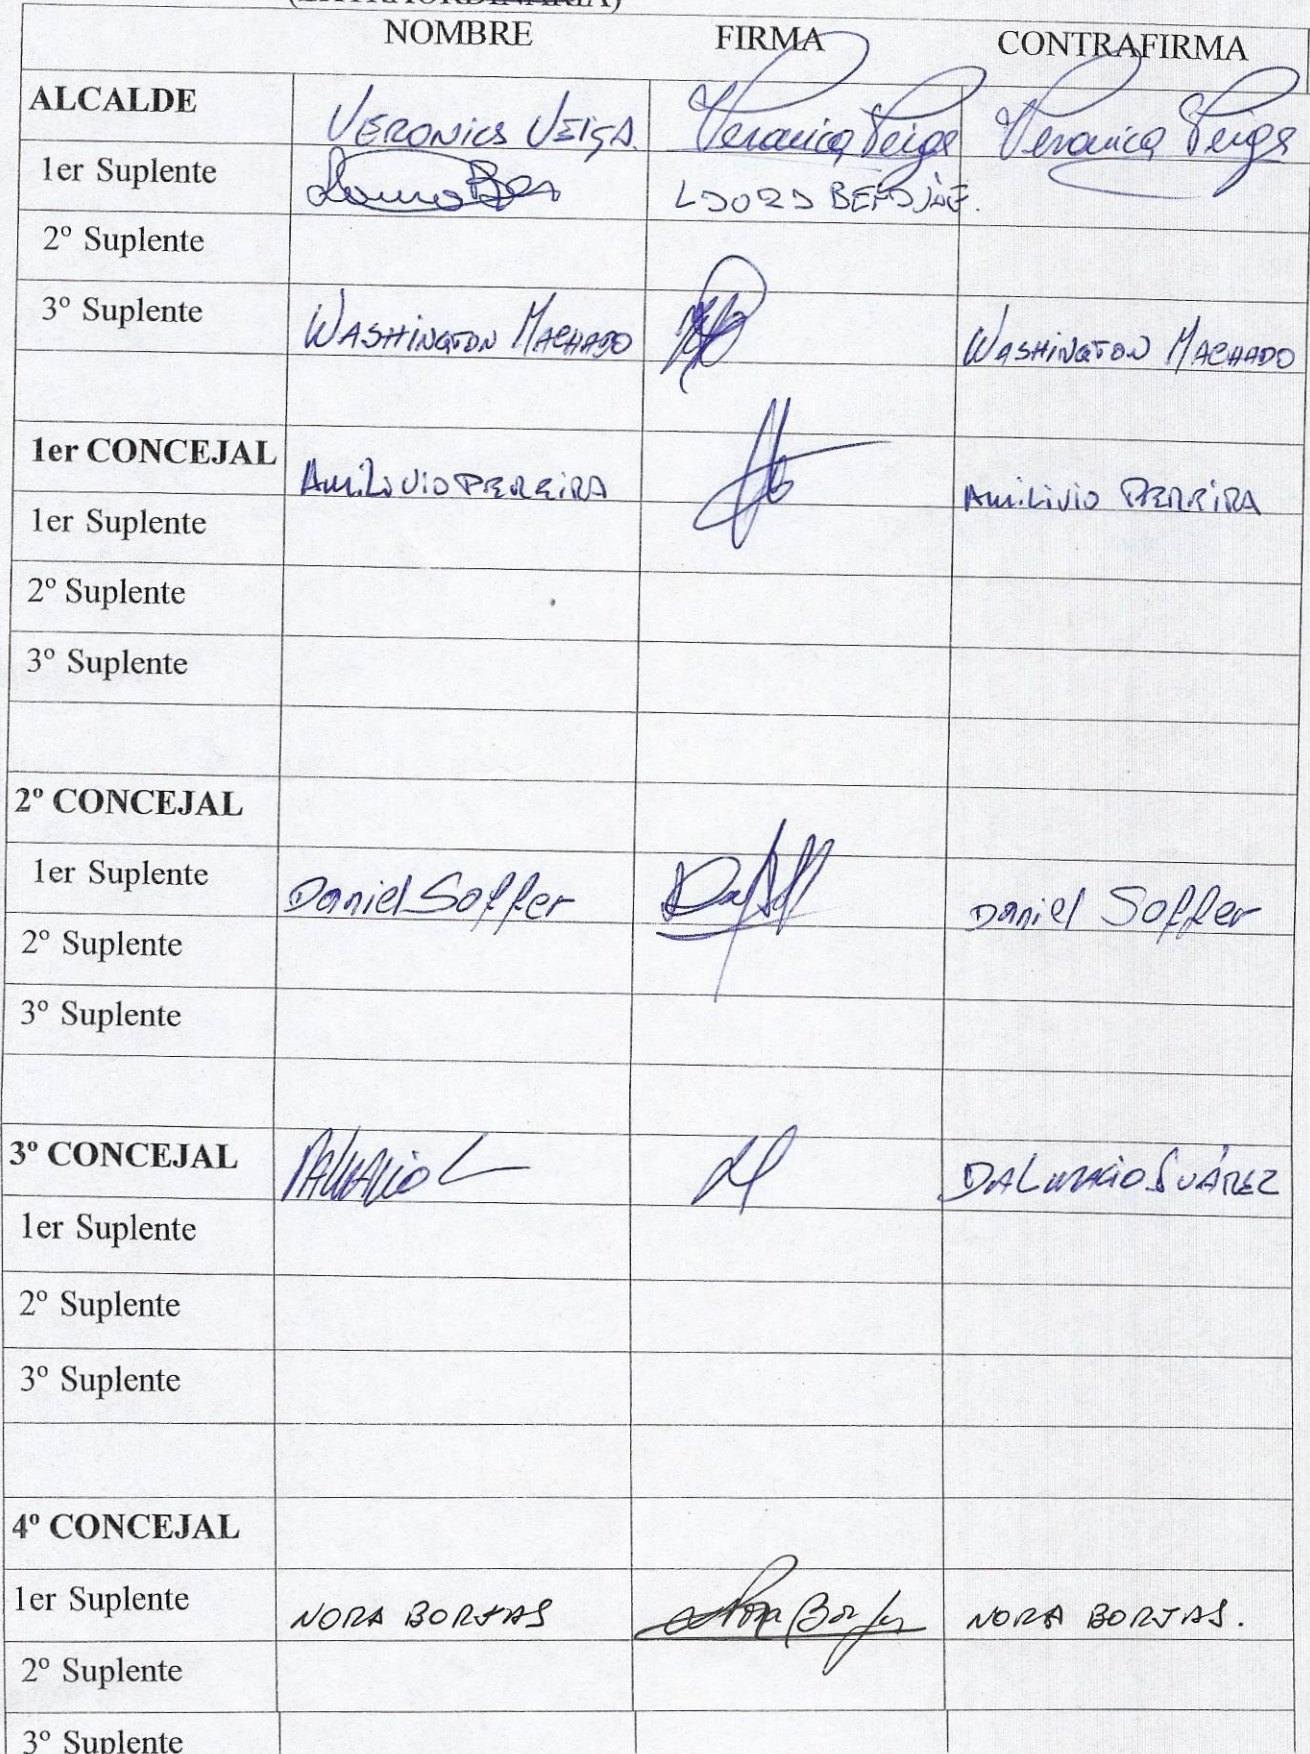 (EXTRAORDINARIA)
NOMBRE FIRMA CONTRAFIRMA
ALCALDE VERONICA VEIGA. Veronica Veiga Veronica Veiga
1er Suplente
2º Suplente
3º Suplente WASHINGTON MACHADO WASHINGTON MACHADO
1er CONCEJAL AMILIVIO PEREIRA AMILIVIO PERREIRA
1er Suplente
2º Suplente
3º Suplente
2º CONCEJAL
1er Suplente Daniel Soffer Daniel Soffer
2º Suplente
3º Suplente
3º CONCEJAL DALMACIO SUÁREZ
1er Suplente
2º Suplente
3º Suplente
4º CONCEJAL
1er Suplente NORA BORJAS Nora Borjas NORA BORJAS.
2º Suplente
3º Suplente